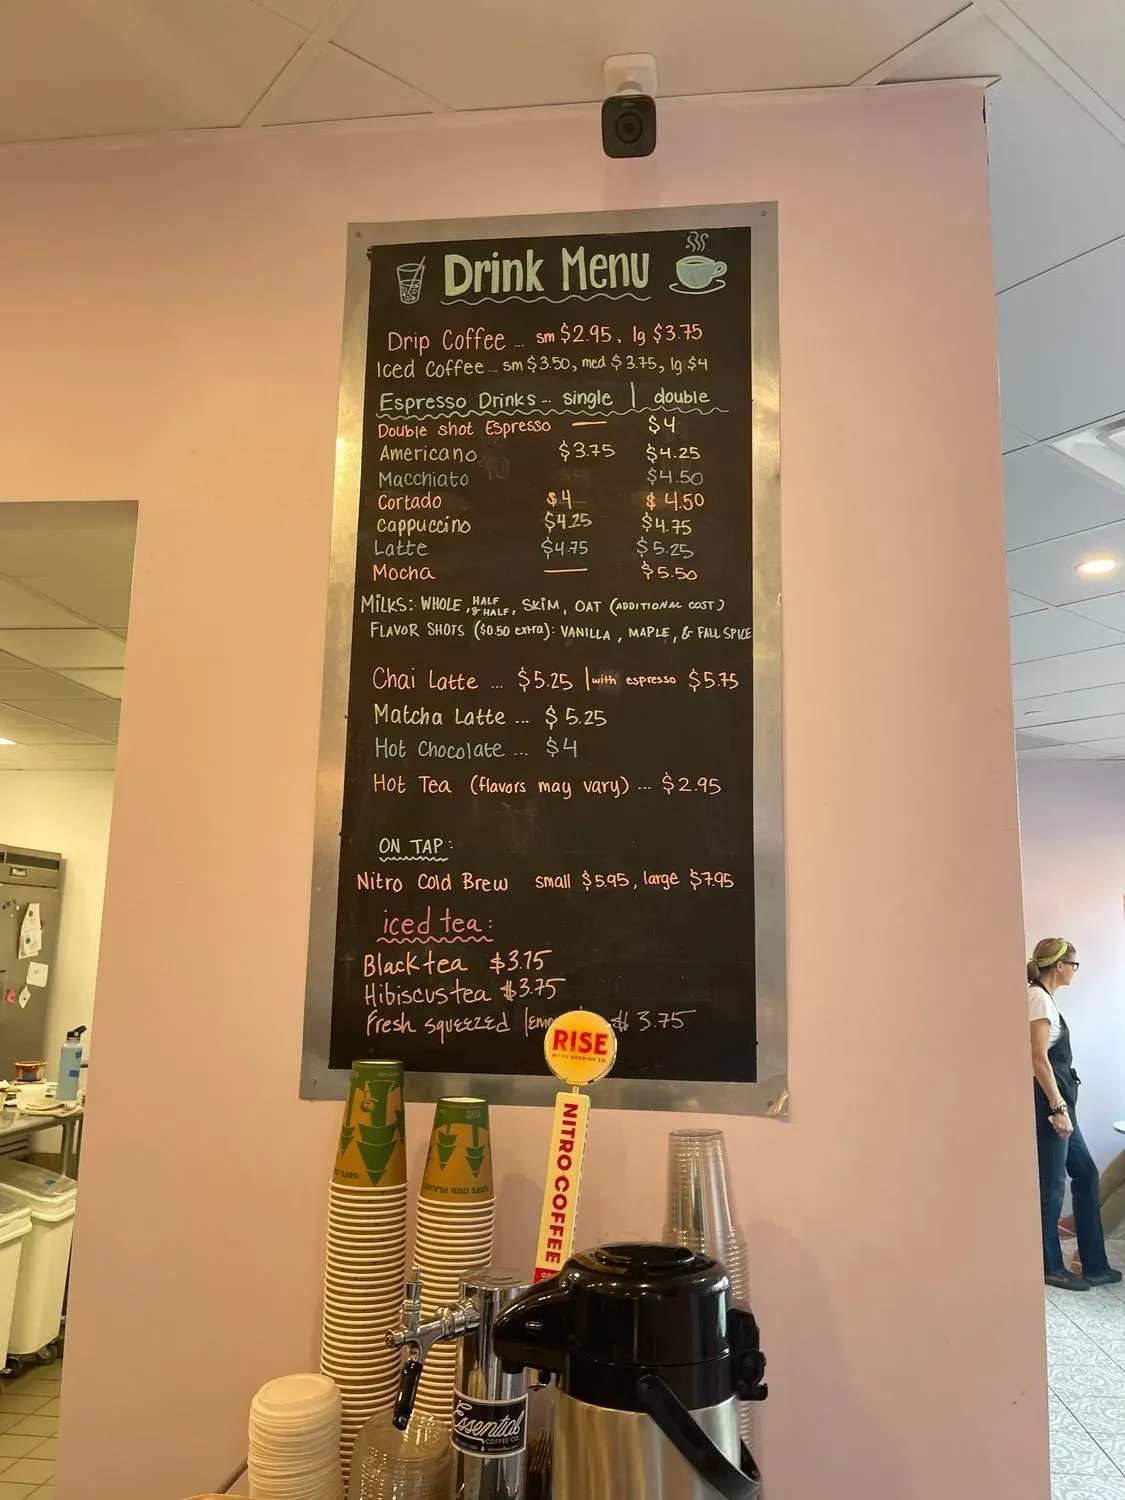 Drink Menu
Drip Coffee ... sm $2.95, lg $3.75
Iced Coffee ... sm $3.50, med $3.75, lg $4
Espresso Drinks ... single | double
Double shot Espresso — $4
Americano $3.75 $4.25
Macchiato $4.50
Cortado $4 $4.50
Cappuccino $4.25 $4.75
Latte $4.75 $5.25
Mocha — $5.50
MILKS: WHOLE, HALF & HALF, SKIM, OAT (ADDITIONAL COST)
FLAVOR SHOTS ($0.50 extra): VANILLA, MAPLE, & FALL SPICE
Chai Latte ... $5.25 | with espresso $5.75
Matcha Latte ... $5.25
Hot Chocolate ... $4
Hot Tea (flavors may vary) ... $2.95
ON TAP:
Nitro Cold Brew small $5.95, large $7.95
iced tea:
Black tea $3.75
Hibiscus tea $3.75
Fresh squeezed $3.75
RISE
NITRO BREWING CO.
NITRO COFFEE
SAVE OUR PLANET
Essential
COFFEE CO.